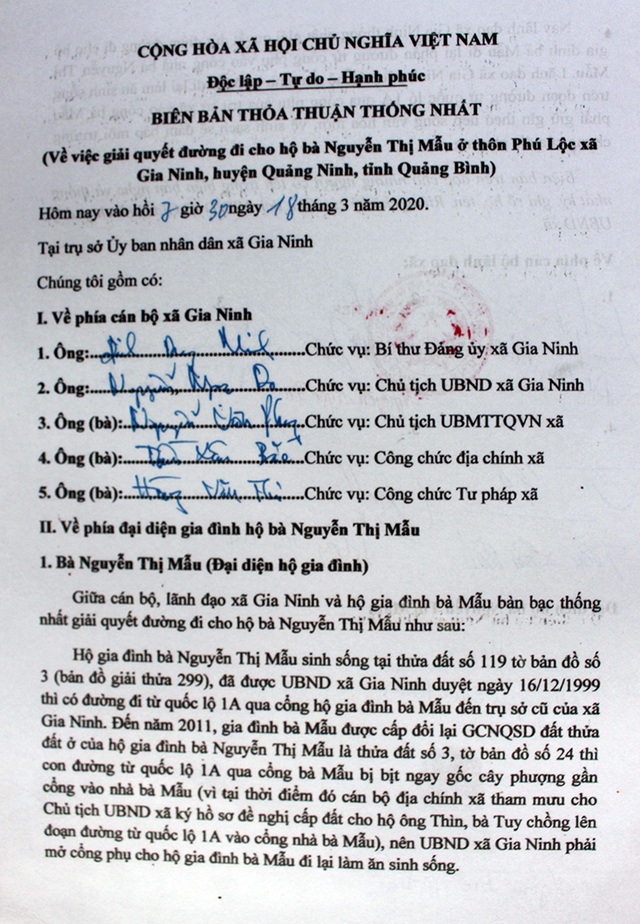 CỘNG HÒA XÃ HỘI CHỦ NGHĨA VIỆT NAM
Độc lập – Tự do – Hạnh phúc
BIÊN BẢN THỎA THUẬN THỐNG NHẤT
(Về việc giải quyết đường đi cho hộ bà Nguyễn Thị Mẫu ở thôn Phú Lộc xã
Gia Ninh, huyện Quảng Ninh, tỉnh Quảng Bình)
Hôm nay vào hồi 7 giờ 30 ngày 18 tháng 3 năm 2020.
Tại trụ sở Ủy ban nhân dân xã Gia Ninh
Chúng tôi gồm có:
I. Về phía cán bộ xã Gia Ninh
1. Ông: Chức vụ: Bí thư Đảng ủy xã Gia Ninh
2. Ông: Nguyễn Chức vụ: Chủ tịch UBND xã Gia Ninh
3. Ông (bà): Nguyễn Văn Chức vụ: Chủ tịch UBMTTQVN xã
4. Ông (bà): Chức vụ: Công chức địa chính xã
5. Ông (bà): Văn Chức vụ: Công chức Tư pháp xã
II. Về phía đại diện gia đình hộ bà Nguyễn Thị Mẫu
1. Bà Nguyễn Thị Mẫu (Đại diện hộ gia đình)
Giữa cán bộ, lãnh đạo xã Gia Ninh và hộ gia đình bà Mẫu bàn bạc thống
nhất giải quyết đường đi cho hộ bà Nguyễn Thị Mẫu như sau:
Hộ gia đình bà Nguyễn Thị Mẫu sinh sống tại thửa đất số 119 tờ bản đồ số
3 (bản đồ giải thửa 299), đã được UBND xã Gia Ninh duyệt ngày 16/12/1999
thì có đường đi từ quốc lộ 1A qua cổng hộ gia đình bà Mẫu đến trụ sở cũ của xã
Gia Ninh. Đến năm 2011, gia đình bà Mẫu được cấp đổi lại GCNQSD đất thửa
đất ở của hộ gia đình bà Nguyễn Thị Mẫu là thửa đất số 3, tờ bản đồ số 24 thì
con đường từ quốc lộ 1A qua cổng bà Mẫu bị bịt ngay gốc cây phượng gần
cổng vào nhà bà Mẫu (vì tại thời điểm đó cán bộ địa chính xã tham mưu cho
Chủ tịch UBND xã ký hồ sơ đề nghị cấp đất cho hộ ông Thìn, bà Tuy chồng lên
đoạn đường từ quốc lộ 1A vào cổng nhà bà Mẫu), nên UBND xã Gia Ninh phải
mở cổng phụ cho hộ gia đình bà Mẫu đi lại làm ăn sinh sống.